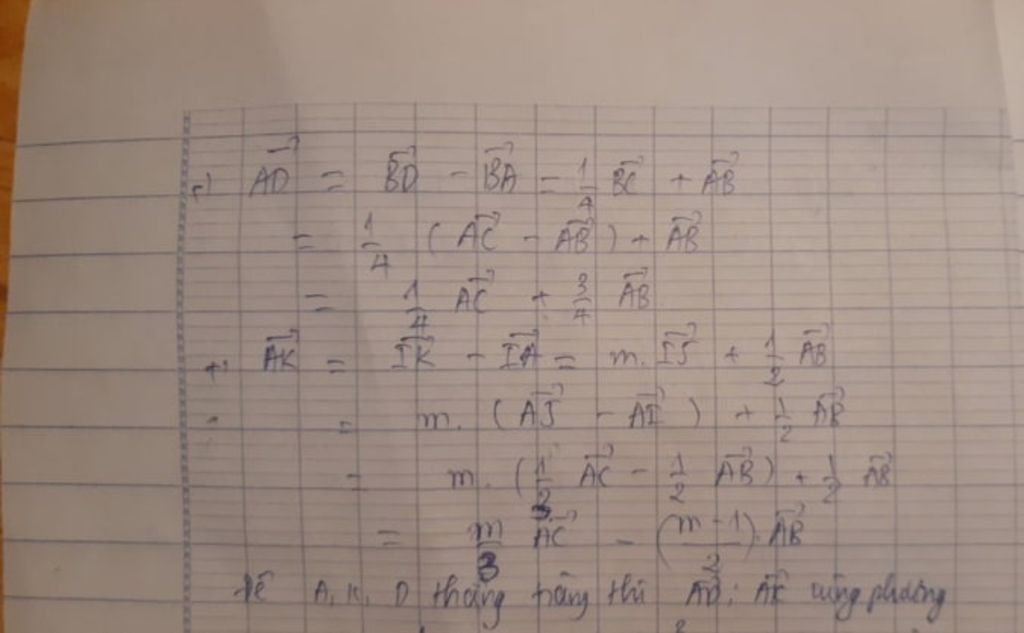 +) AD⃗ = BD⃗ - BA⃗ = 1/4 BC⃗ + AB⃗
= 1/4 (AC⃗ - AB⃗) + AB⃗
= 1/4 AC⃗ + 3/4 AB⃗
+) AK⃗ = IK⃗ - IA⃗ = m. IJ⃗ + 1/2 AB⃗
= m. (AJ⃗ - AI⃗) + 1/2 AB⃗
= m. (1/3 AC⃗ - 1/2 AB⃗) + 1/2 AB⃗
= m/3 AC⃗ - (m-1)/2 . AB⃗
Để A, K, D thẳng hàng thì AD⃗; AK⃗ cùng phương